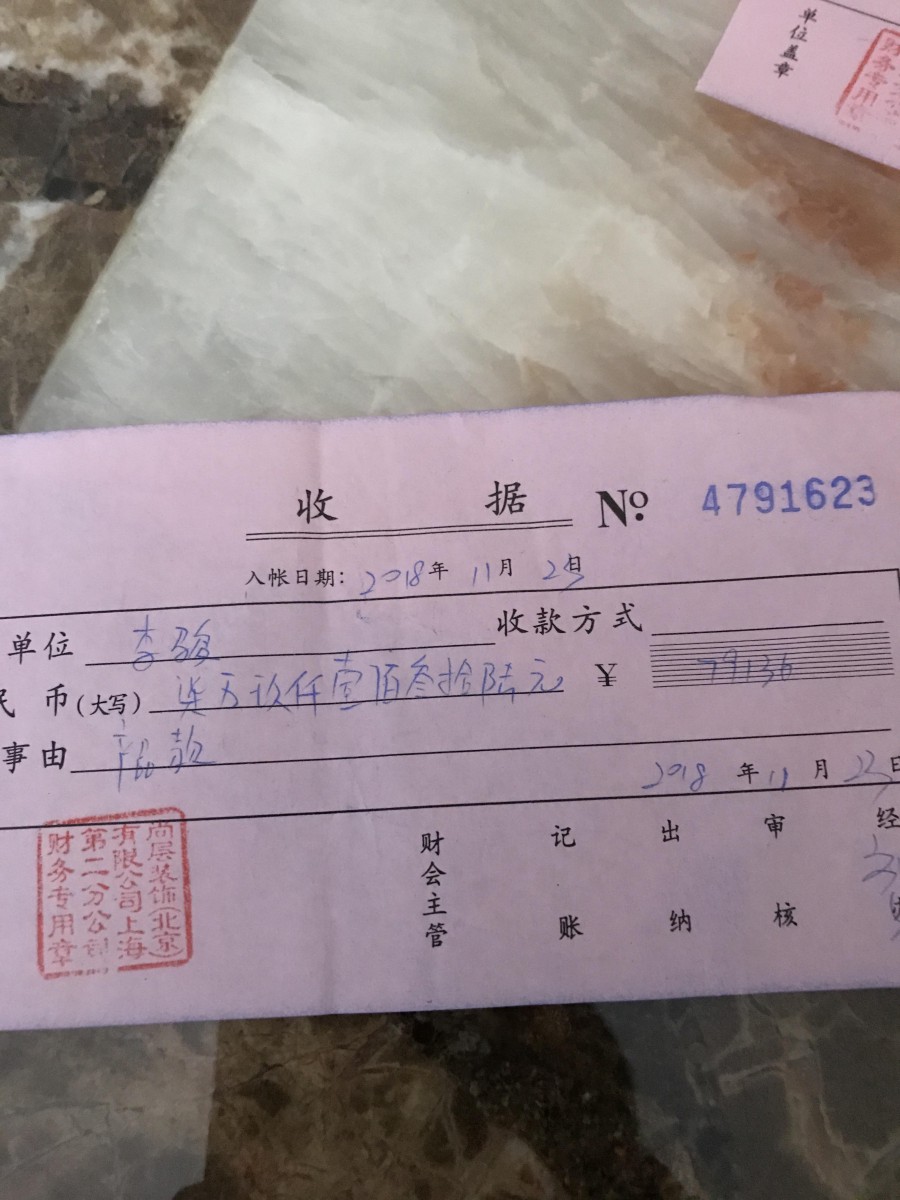 单位盖章
财务专用章
收 据 No 4791623
入帐日期: 2018年 11月 23日
单位 李骏 收款方式
民 币(大写) 柒万玖仟壹佰叁拾陆元 ¥ 79136
事由 款
2018 年 11 月 23日
财会主管 记账 出纳 审核 经
尚层装饰(北京)
有限公司上海
第二分公司
财务专用章